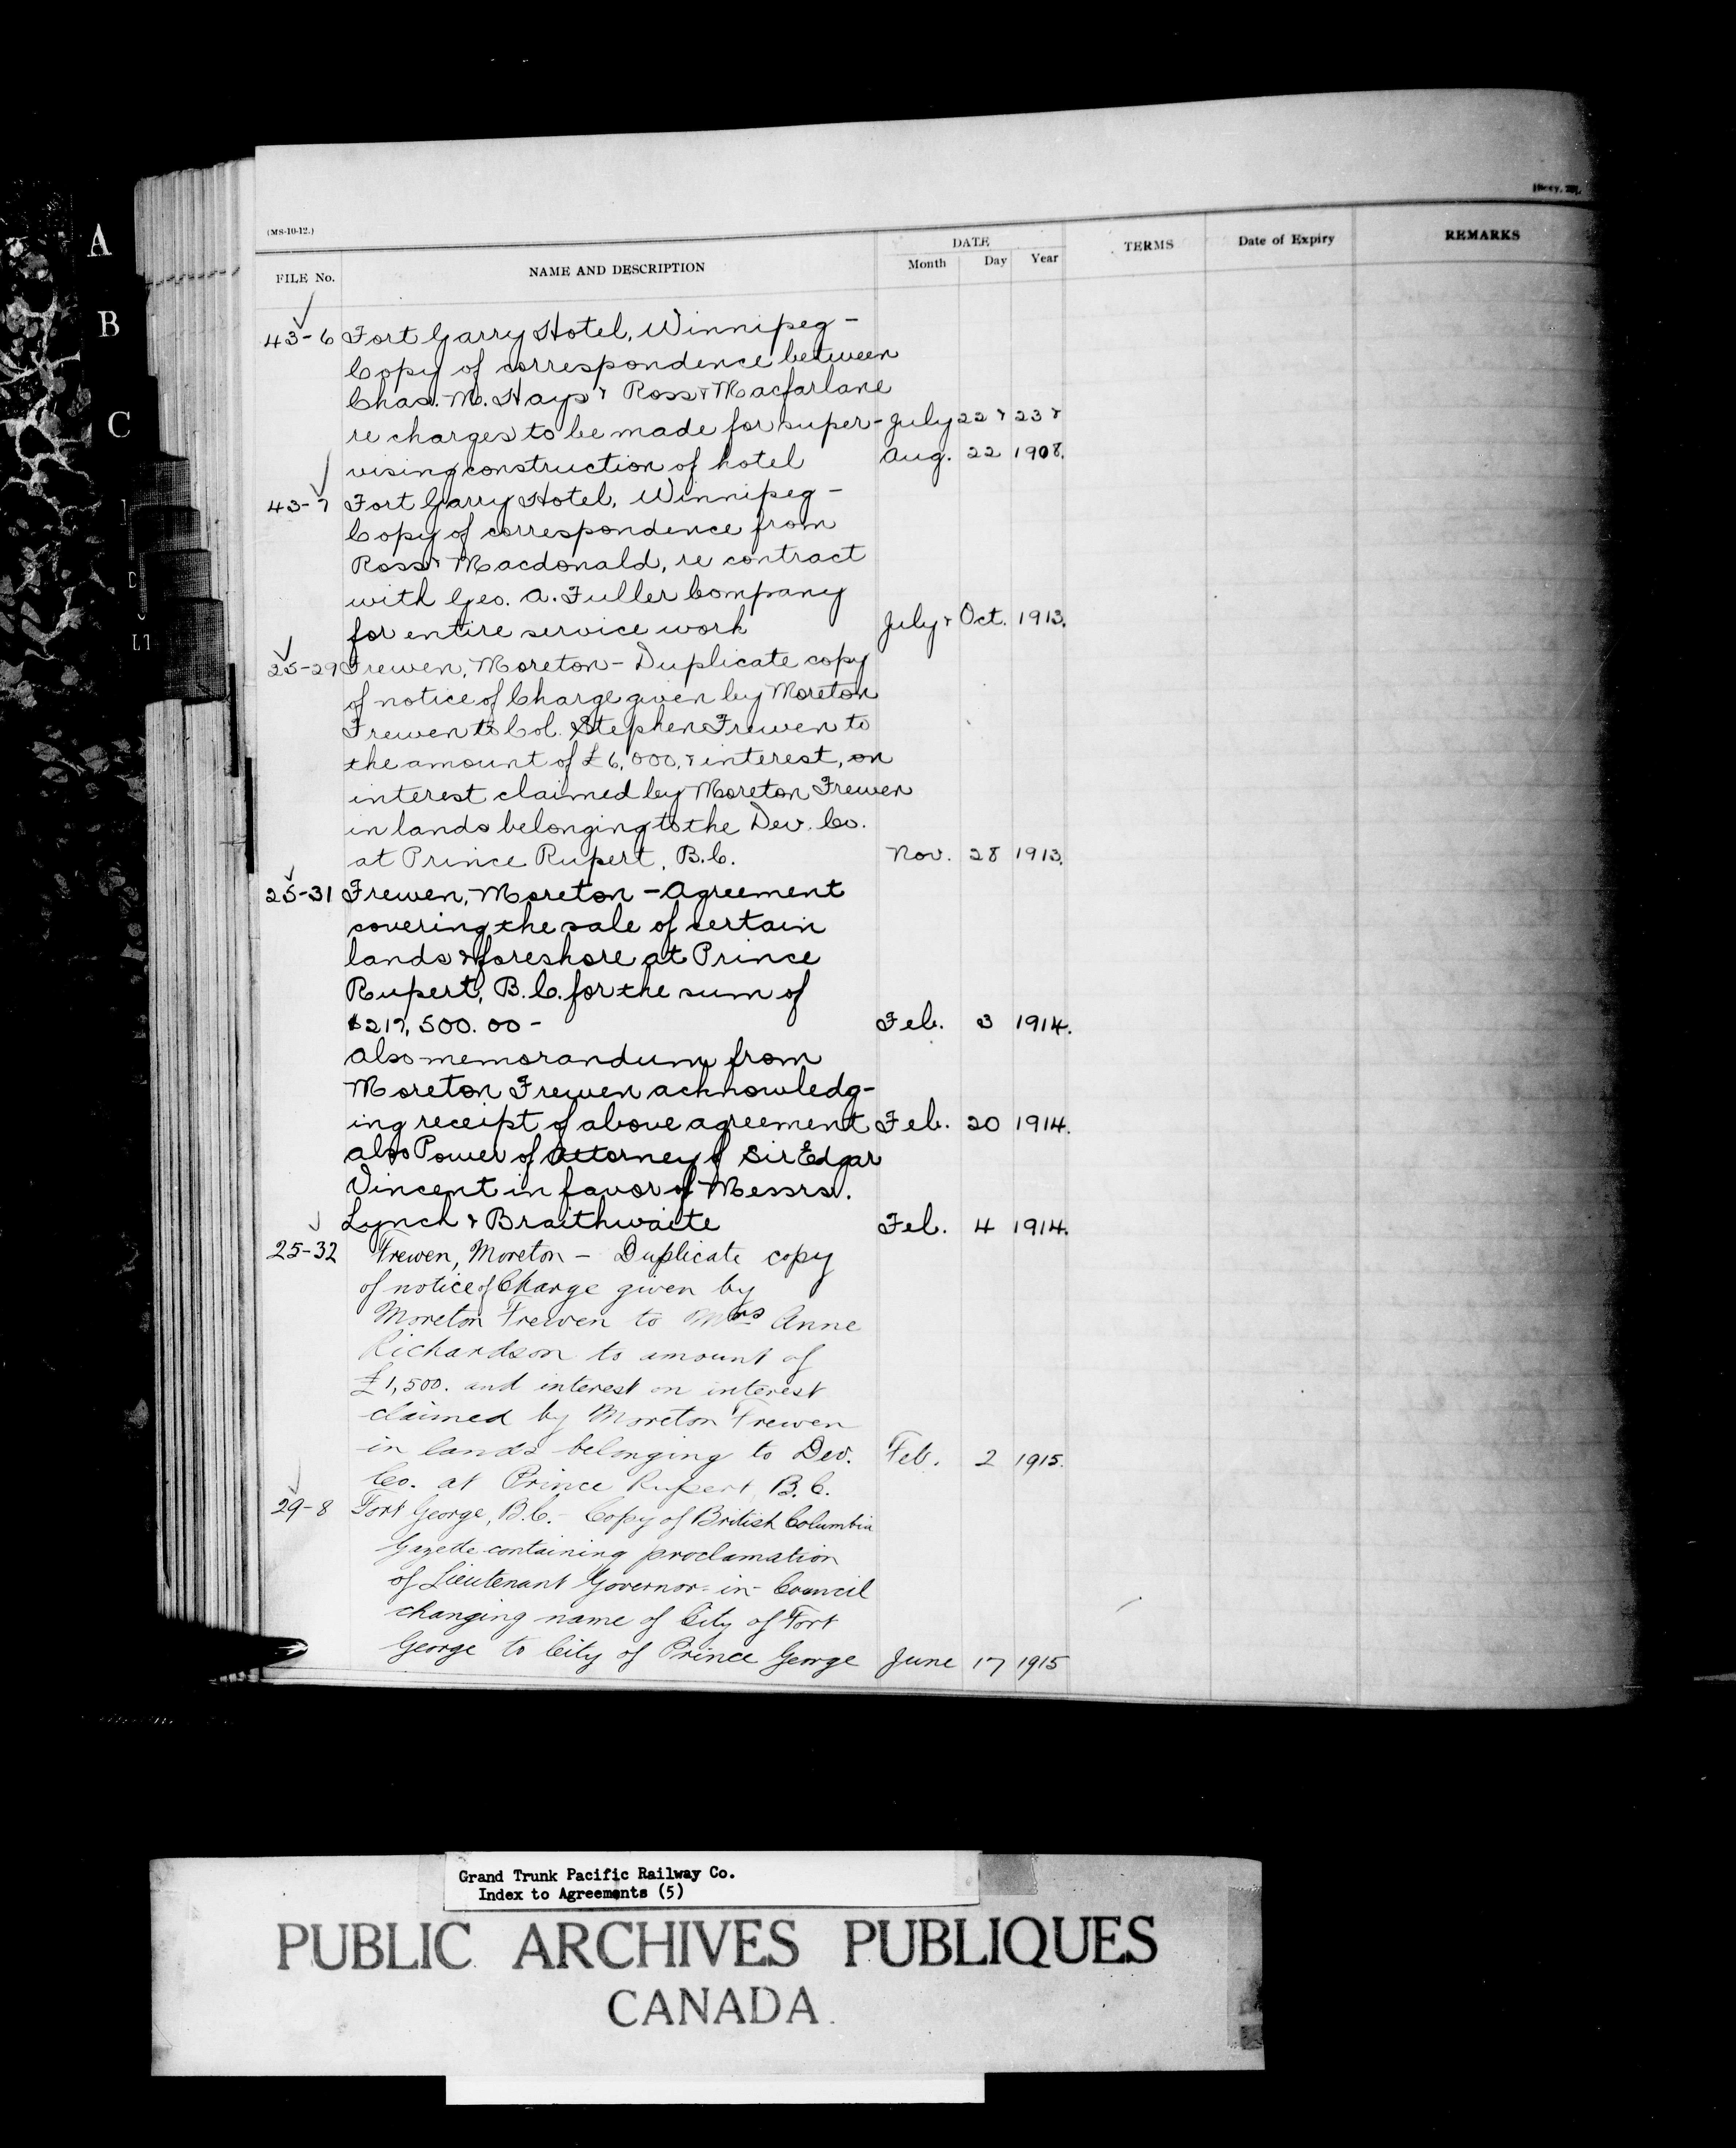 (MS-10-12.)
FILE No.
NAME AND DESCRIPTION
DATE
Month Day Year
TERMS
Date of Expiry
REMARKS
A
B
C
43-6 Fort Garry Hotel, Winnipeg -
Copy of correspondence between
Chas. M. Hays & Ross & Macfarlane
re charges to be made for super- July 22 & 23 &
vising construction of hotel Aug. 22 1908.
43-7 Fort Garry Hotel, Winnipeg -
Copy of correspondence from
Ross & Macdonald, re contract
with Geo. A. Fuller Company
for entire service work July & Oct. 1913.
25-29 Frewen, Moreton - Duplicate copy
of notice of Charge given by Moreton
Frewen to Col. Stephen Frewen to
the amount of £6,000, & interest, on
interest claimed by Moreton Frewen
in lands belonging to the Dev. Co.
at Prince Rupert, B.C. Nov. 28 1913.
25-31 Frewen, Moreton - Agreement
covering the sale of certain
lands & foreshore at Prince
Rupert, B.C. for the sum of
$217,500.00 - Feb. 3 1914.
Also memorandum from
Moreton Frewen acknowledg-
ing receipt of above agreement Feb. 20 1914.
also Power of Attorney of Sir Edgar
Vincent in favor of Messrs.
Lynch & Braithwaite Feb. 4 1914.
25-32 Frewen, Moreton - Duplicate copy
of notice of Charge given by
Moreton Frewen to Mrs Anne
Richardson to amount of
£1,500. and interest on interest
claimed by Moreton Frewen
in lands belonging to Dev. Feb. 2 1915.
Co. at Prince Rupert, B.C.
29-8 Fort George, B.C. - Copy of British Columbia
Gazette containing proclamation
of Lieutenant Governor-in-Council
changing name of City of Fort
George to City of Prince George June 17 1915
Grand Trunk Pacific Railway Co.
Index to Agreements (5)
PUBLIC ARCHIVES PUBLIQUES
CANADA